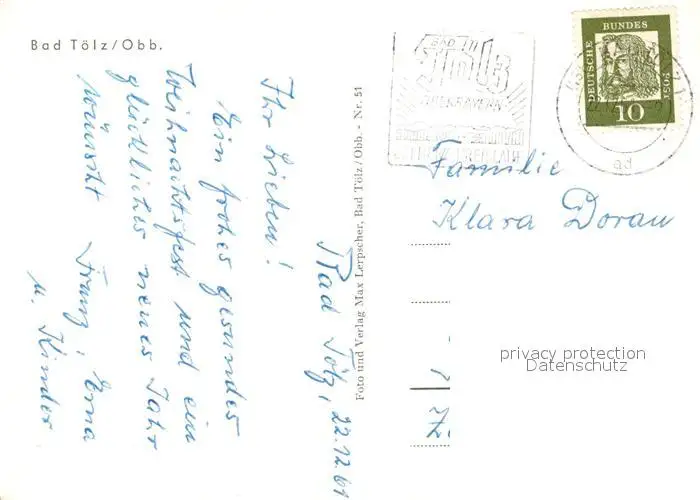 Bad Tölz/Obb.
Bad Tölz, 22.12.61
Ihr Lieben!
Ein frohes gesundes
Weihnachtsfest und ein
glückliches neues Jahr
wünscht Franz, Erna
u. Kinder
Foto und Verlag Max Lerpscher, Bad Tölz/Obb. - Nr. 51
BAD
Tölz
OBERBAYERN
DEUTSCHE
BUNDES
POST
10
Familie
Klara Dorau
privacy protection
Datenschutz